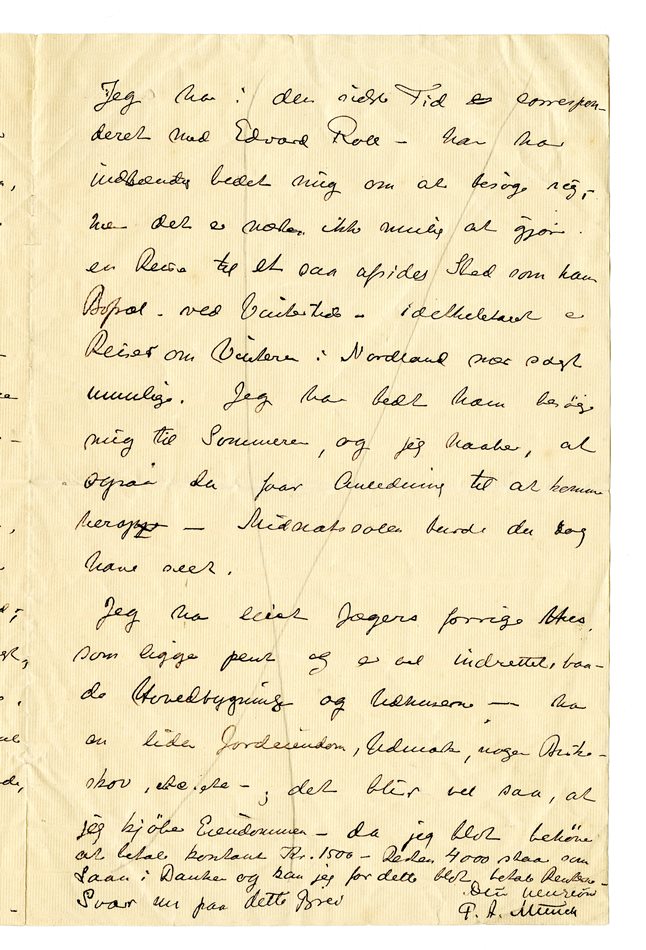 Jeg har i den sidste Tid correspon-
deret med Edvard Roll – han har
indstændig bedet mig om at besøge sig,
men det er næsten ikke mulig at gjøre
en Reise til et saa afsides Sted som hans
Bopæl – ved Vintertid – idethelet er
Reiser om Vinteren i Nordland nær sagt
umulige. Jeg har bedt ham besøge
mig til Sommeren, og jeg haaber, at
ogsaa du faar Anledning til at komme
herop – Midnatssolen burde du dog
have seet.
Jeg har leiet Jægers forrige Hus,
som ligger pent og er vel indrettet, baa-
de Hovedbygning og Udhusene – har
en liden Jordeiendom, Udmark, noget Birke-
skov, – ; det blir vel saa, at
jeg kjøber Eiendommen – da jeg blot behøver
at betale kontant Kr. 1500 – Resten 4000 staa som
Laan i Banken og kan jeg for dette blot betale Renterne –
Svar nu paa dette Brev
Din
P. A. Munch